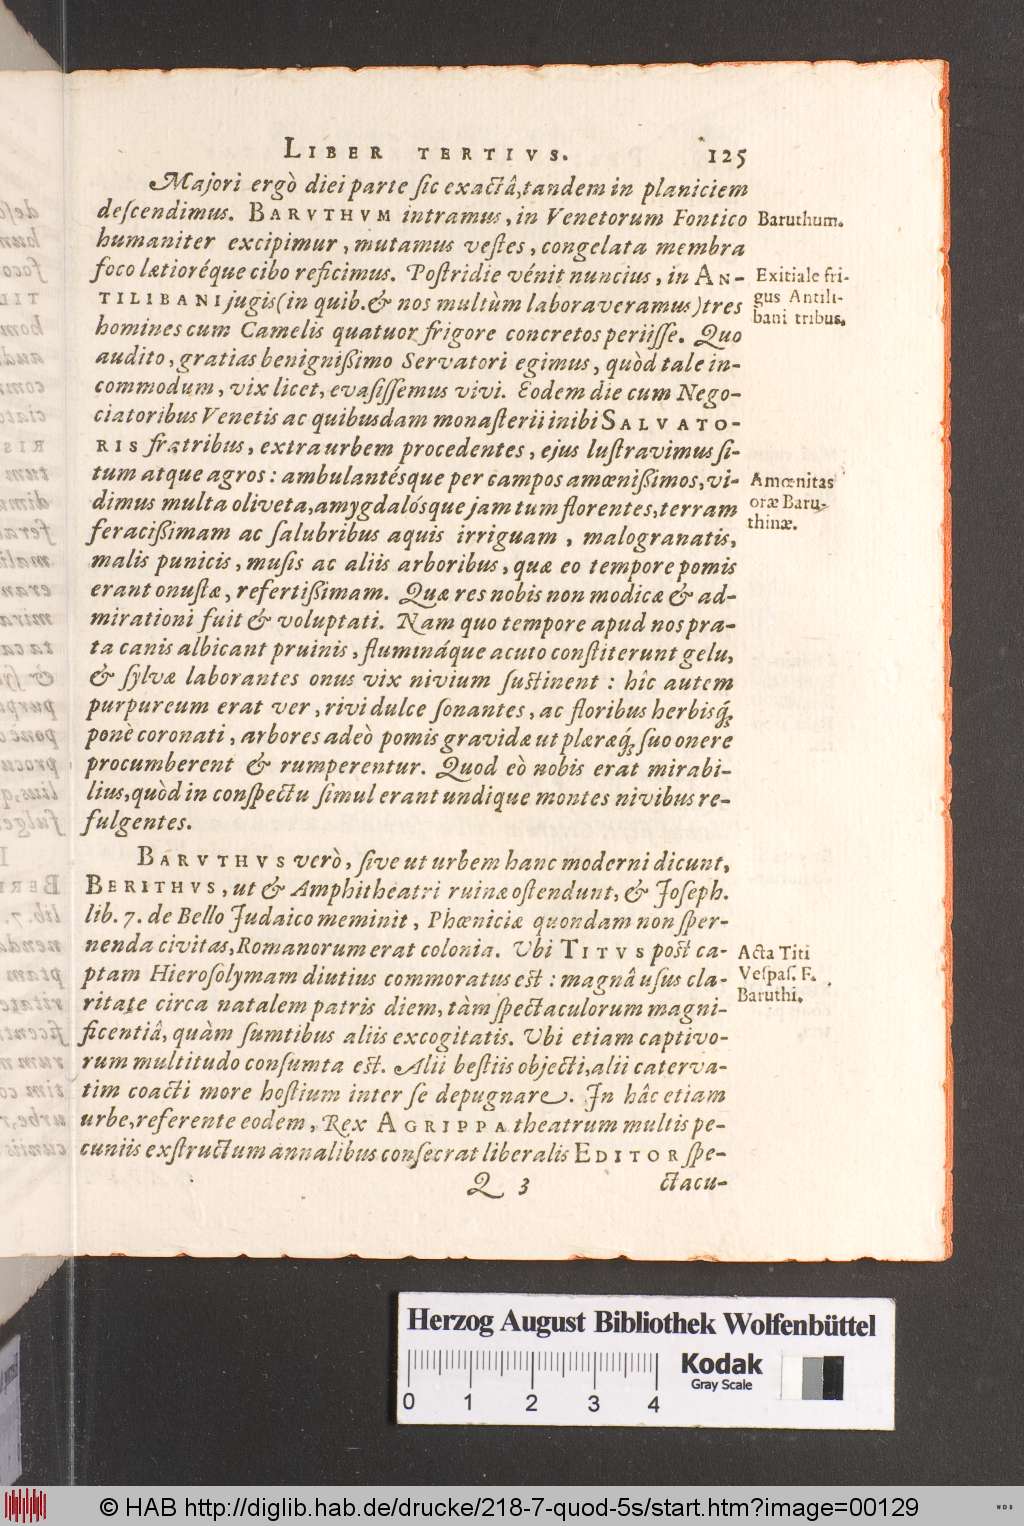 LIBER TERTIVS. 125
Majori ergò diei parte sic exactâ, tandem in planiciem
descendimus. BARVTHVM intramus, in Venetorum Fontico
humaniter excipimur, mutamus vestes, congelata membra
foco lætioréque cibo reficimus. Postridie vénit nuncius, in AN-
TILIBANI jugis (in quib. & nos multùm laboraveramus) tres
homines cum Camelis quatuor frigore concretos periisse. Quo
audito, gratias benignißimo Servatori egimus, quòd tale in-
commodum, vix licet, evasissemus vivi. Eodem die cum Nego-
ciatoribus Venetis ac quibusdam monasterii inibi SALVATO-
RIS fratribus, extra urbem procedentes, ejus lustravimus si-
tum atque agros: ambulantésque per campos amœnißimos, vi-
dimus multa oliveta, amygdalósque jam tum florentes, terram
feracißimam ac salubribus aquis irriguam, malogranatis,
malis punicis, musis ac aliis arboribus, quæ eo tempore pomis
erant onustæ, refertißimam. Quæ res nobis non modicæ & ad-
mirationi fuit & voluptati. Nam quo tempore apud nos pra-
ta canis albicant pruinis, flumináque acuto constiterunt gelu,
& sylvæ laborantes onus vix nivium sustinent: hîc autem
purpureum erat ver, rivi dulce sonantes, ac floribus herbisq́;
ponè coronati, arbores adeò pomis gravidæ ut plæræq́; suo onere
procumberent & rumperentur. Quod eò nobis erat mirabi-
lius, quòd in conspectu simul erant undique montes nivibus re-
fulgentes.
BARVTHVS verò, sive ut urbem hanc moderni dicunt,
BERITHVS, ut & Amphitheatri ruinæ ostendunt, & Joseph.
lib. 7. de Bello Judaico meminit, Phœniciæ quondam non sper-
nenda civitas, Romanorum erat colonia. Ubi TITVS post ca-
ptam Hierosolymam diutius commoratus est: magnâ usus cla-
ritate circa natalem patris diem, tàm spectaculorum magni-
ficentiâ, quàm sumtibus aliis excogitatis. Ubi etiam captivo-
rum multitudo consumta est. Alii bestiis objecti, alii caterva-
tim coacti more hostium inter se depugnare. In hâc etiam
urbe, referente eodem, Rex AGRIPPA theatrum multis pe-
cuniis exstructum annalibus consecrat liberalis EDITOR spe-
Q 3 ctacu-
Baruthum.
Exitiale fri-
gus Antili-
bani tribus.
Amœnitas
oræ Baru-
thinæ.
Acta Titi
Vespas. F.
Baruthi.
Herzog August Bibliothek Wolfenbüttel
0 1 2 3 4
Kodak
Gray Scale
© HAB http://diglib.hab.de/drucke/218-7-quod-5s/start.htm?image=00129